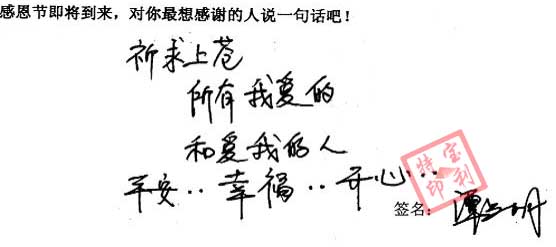 感恩节即将到来，对你最想感谢的人说一句话吧！
祈求上苍
所有我爱的
和爱我的人
平安‥幸福‥开心…
宝利特印
签名：谭